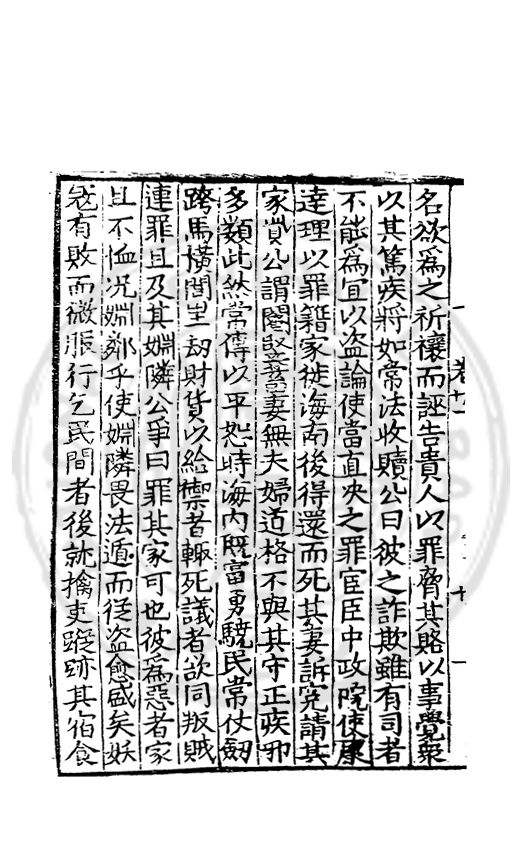 名欲為之祈禳而誣告貴人以罪脅其賂以事覺衆
以其篤疾將如常法收贖公曰彼之詐欺雖有司者
不能為宜以盜論使當直決之罪宦臣中政院使
達理以罪籍家徙海南後得還而死其妻訴冤請其
家貲公謂閹竪妻無夫婦道格不與其守正疾邪
多類此然常傅以平恕時海内既富勇驍民常仗劒
跨馬横閭里刼財貨以給禦者輙死議者欲同叛賊
連罪且及其婣隣公爭曰罪其家可也彼為惡者家
且不恤况婣鄰乎使婣隣畏法遁而從盜愈盛矣妖
冦有敗而微服行乞民間者後就擒吏蹤跡其宿食
卷十一
十一